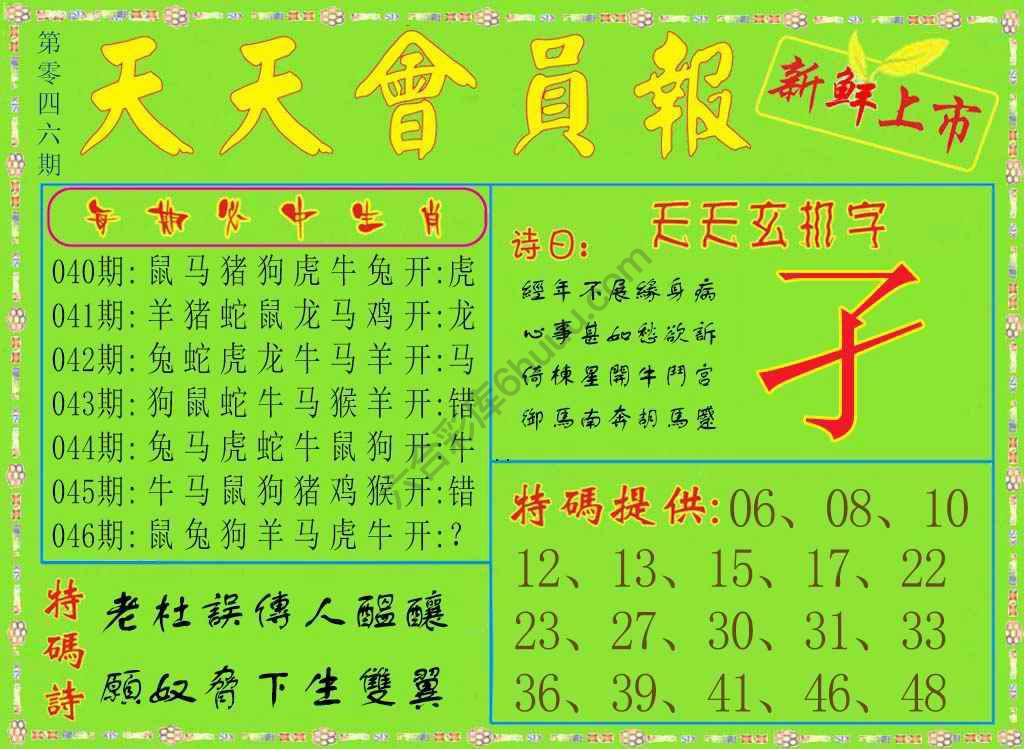 第零四六期
天天會員報
新鮮上市
每期必中生肖
040期: 鼠马猪狗虎牛兔 开:虎
041期: 羊猪蛇鼠龙马鸡 开:龙
042期: 兔蛇虎龙牛马羊 开:马
043期: 狗鼠蛇牛马猴羊 开:错
044期: 兔马虎蛇牛鼠狗 开:牛
045期: 牛马鼠狗猪鸡猴 开:错
046期: 鼠兔狗羊马虎牛 开:?
天天玄机字
诗曰:
經年不展緣身病
心事甚如愁欲訴
倚棟星開牛鬥宮
御馬南奔胡馬蹙
孑
特碼提供: 06、08、10
12、13、15、17、22
23、27、30、31、33
36、39、41、46、48
特碼詩
老杜誤傳人醞釀
願奴脅下生雙翼
六合彩库6huku.com